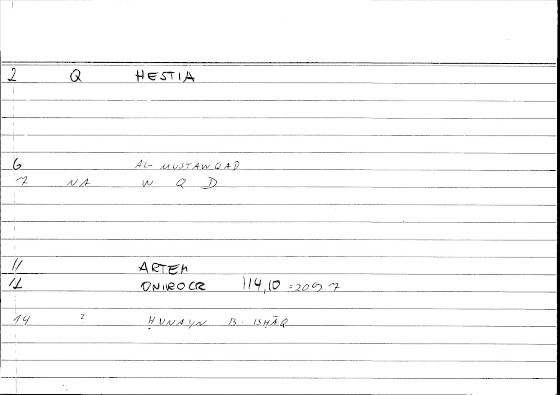 2 Q HESTIA
6 AL-MUSTAWQAD
7 NA W Q D
11 ARTEM
12 ONIROCR 114,10 =209 7
14 ? ḤUNAYN B. ISḤĀQ